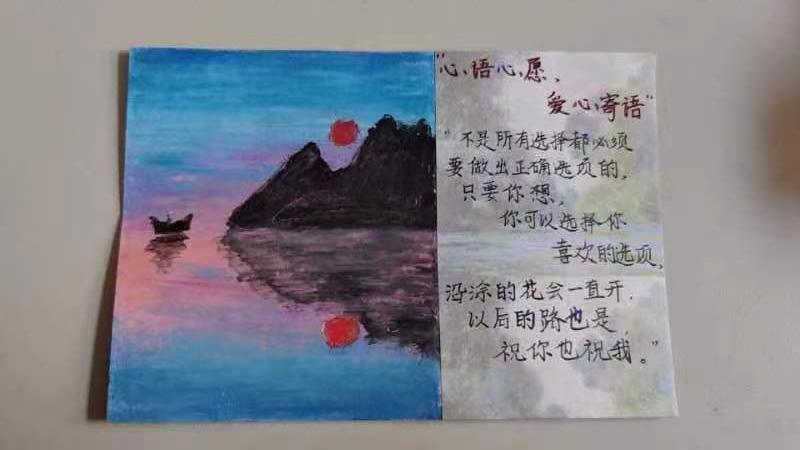 "心语心愿,
爱心寄语"
"不是所有选择都必须
要做出正确选项的,
只要你想,
你可以选择你
喜欢的选项,
沿涂的花会一直开,
以后的路也是,
祝你也祝我。"